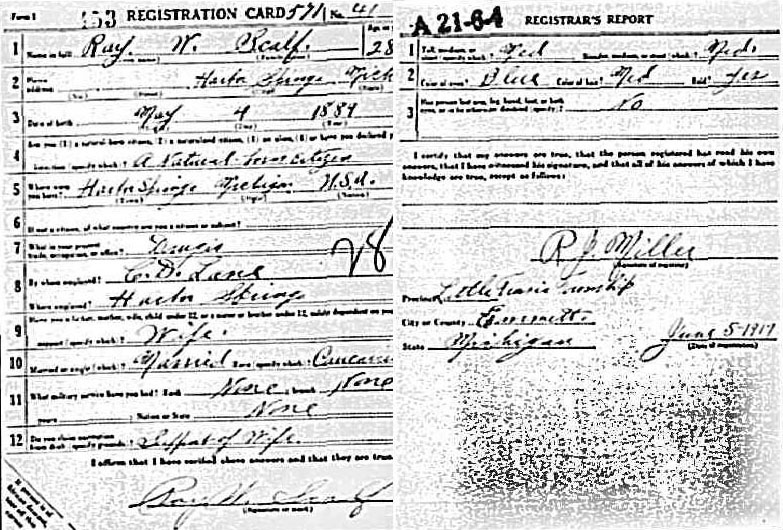 Form 1
153 REGISTRATION CARD 571 No. 41
Age in
1 Name in full Ray. W. Scalf. 28
2 Home address Harbor Springs Mich
3 Date of birth May 4 1889
Are you (1) a natural-born citizen, (2) a naturalized citizen, (3) an alien, (4) or have you declared
4 intention (specify which)? A Natural born citizen
5 Where were you born? Harbor Springs Michigan U.S.A.
6 If not a citizen, of what country are you a citizen or subject?
7 What is your present trade, occupation, or office? 28
8 By whom employed? C. D. Lane
Where employed? Harbor Springs
Have you a father, mother, wife, child under 12, or a sister or brother under 12, solely dependent on you
9 support (specify which)? Wife.
10 Married or single (which)? Married Race (specify which)? Caucasi
11 What military service have you had? Rank None branch None
years Nation or State None
12 Do you claim exemption from draft (specify grounds)? Support of Wife.
I affirm that I have verified above answers and that they are true
Ray W. Scalf
(Signature or mark)
A 21-6-4 REGISTRAR'S REPORT
1 Tall, medium, or short (specify which)? Med Slender, medium, or stout (which)? Med.
2 Color of eyes? Blue Color of hair? Red Bald? Yes
3 Has person lost arm, leg, hand, foot, or both eyes, or is he otherwise disabled (specify)? No
I certify that my answers are true, that the person registered has read his own
answers, that I have witnessed his signature, and that all of his answers of which I have
knowledge are true, except as follows:
R J. Miller
(Signature of registrar)
Precinct Little Travis Township
City or County Emmett.
State Michigan June 5-1917
(Date of registration)